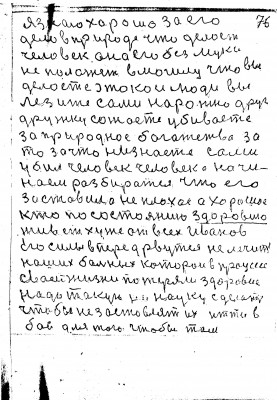 76
я знаю хорошо за его
дело в природе что делает
человек она его без муки
не положет в могилу что вы
делаете это кои люди вы
лезите сами нарожно друг
дружку сожаете убиваете
за природное богатство за
то за что незнаете сами
убил человек человека начи-
наем разбиратся что его
заставило не плохое а хорошое
кто по состоянию здоровию
живет хуже от всех Иванов
его силы вперед рвутся не лечит
наших больных которои в процессе
своеи жизни потеряли здоровие
надо такую науку сделать
чтобы незаставлят их итти в
бой для того чтобы там